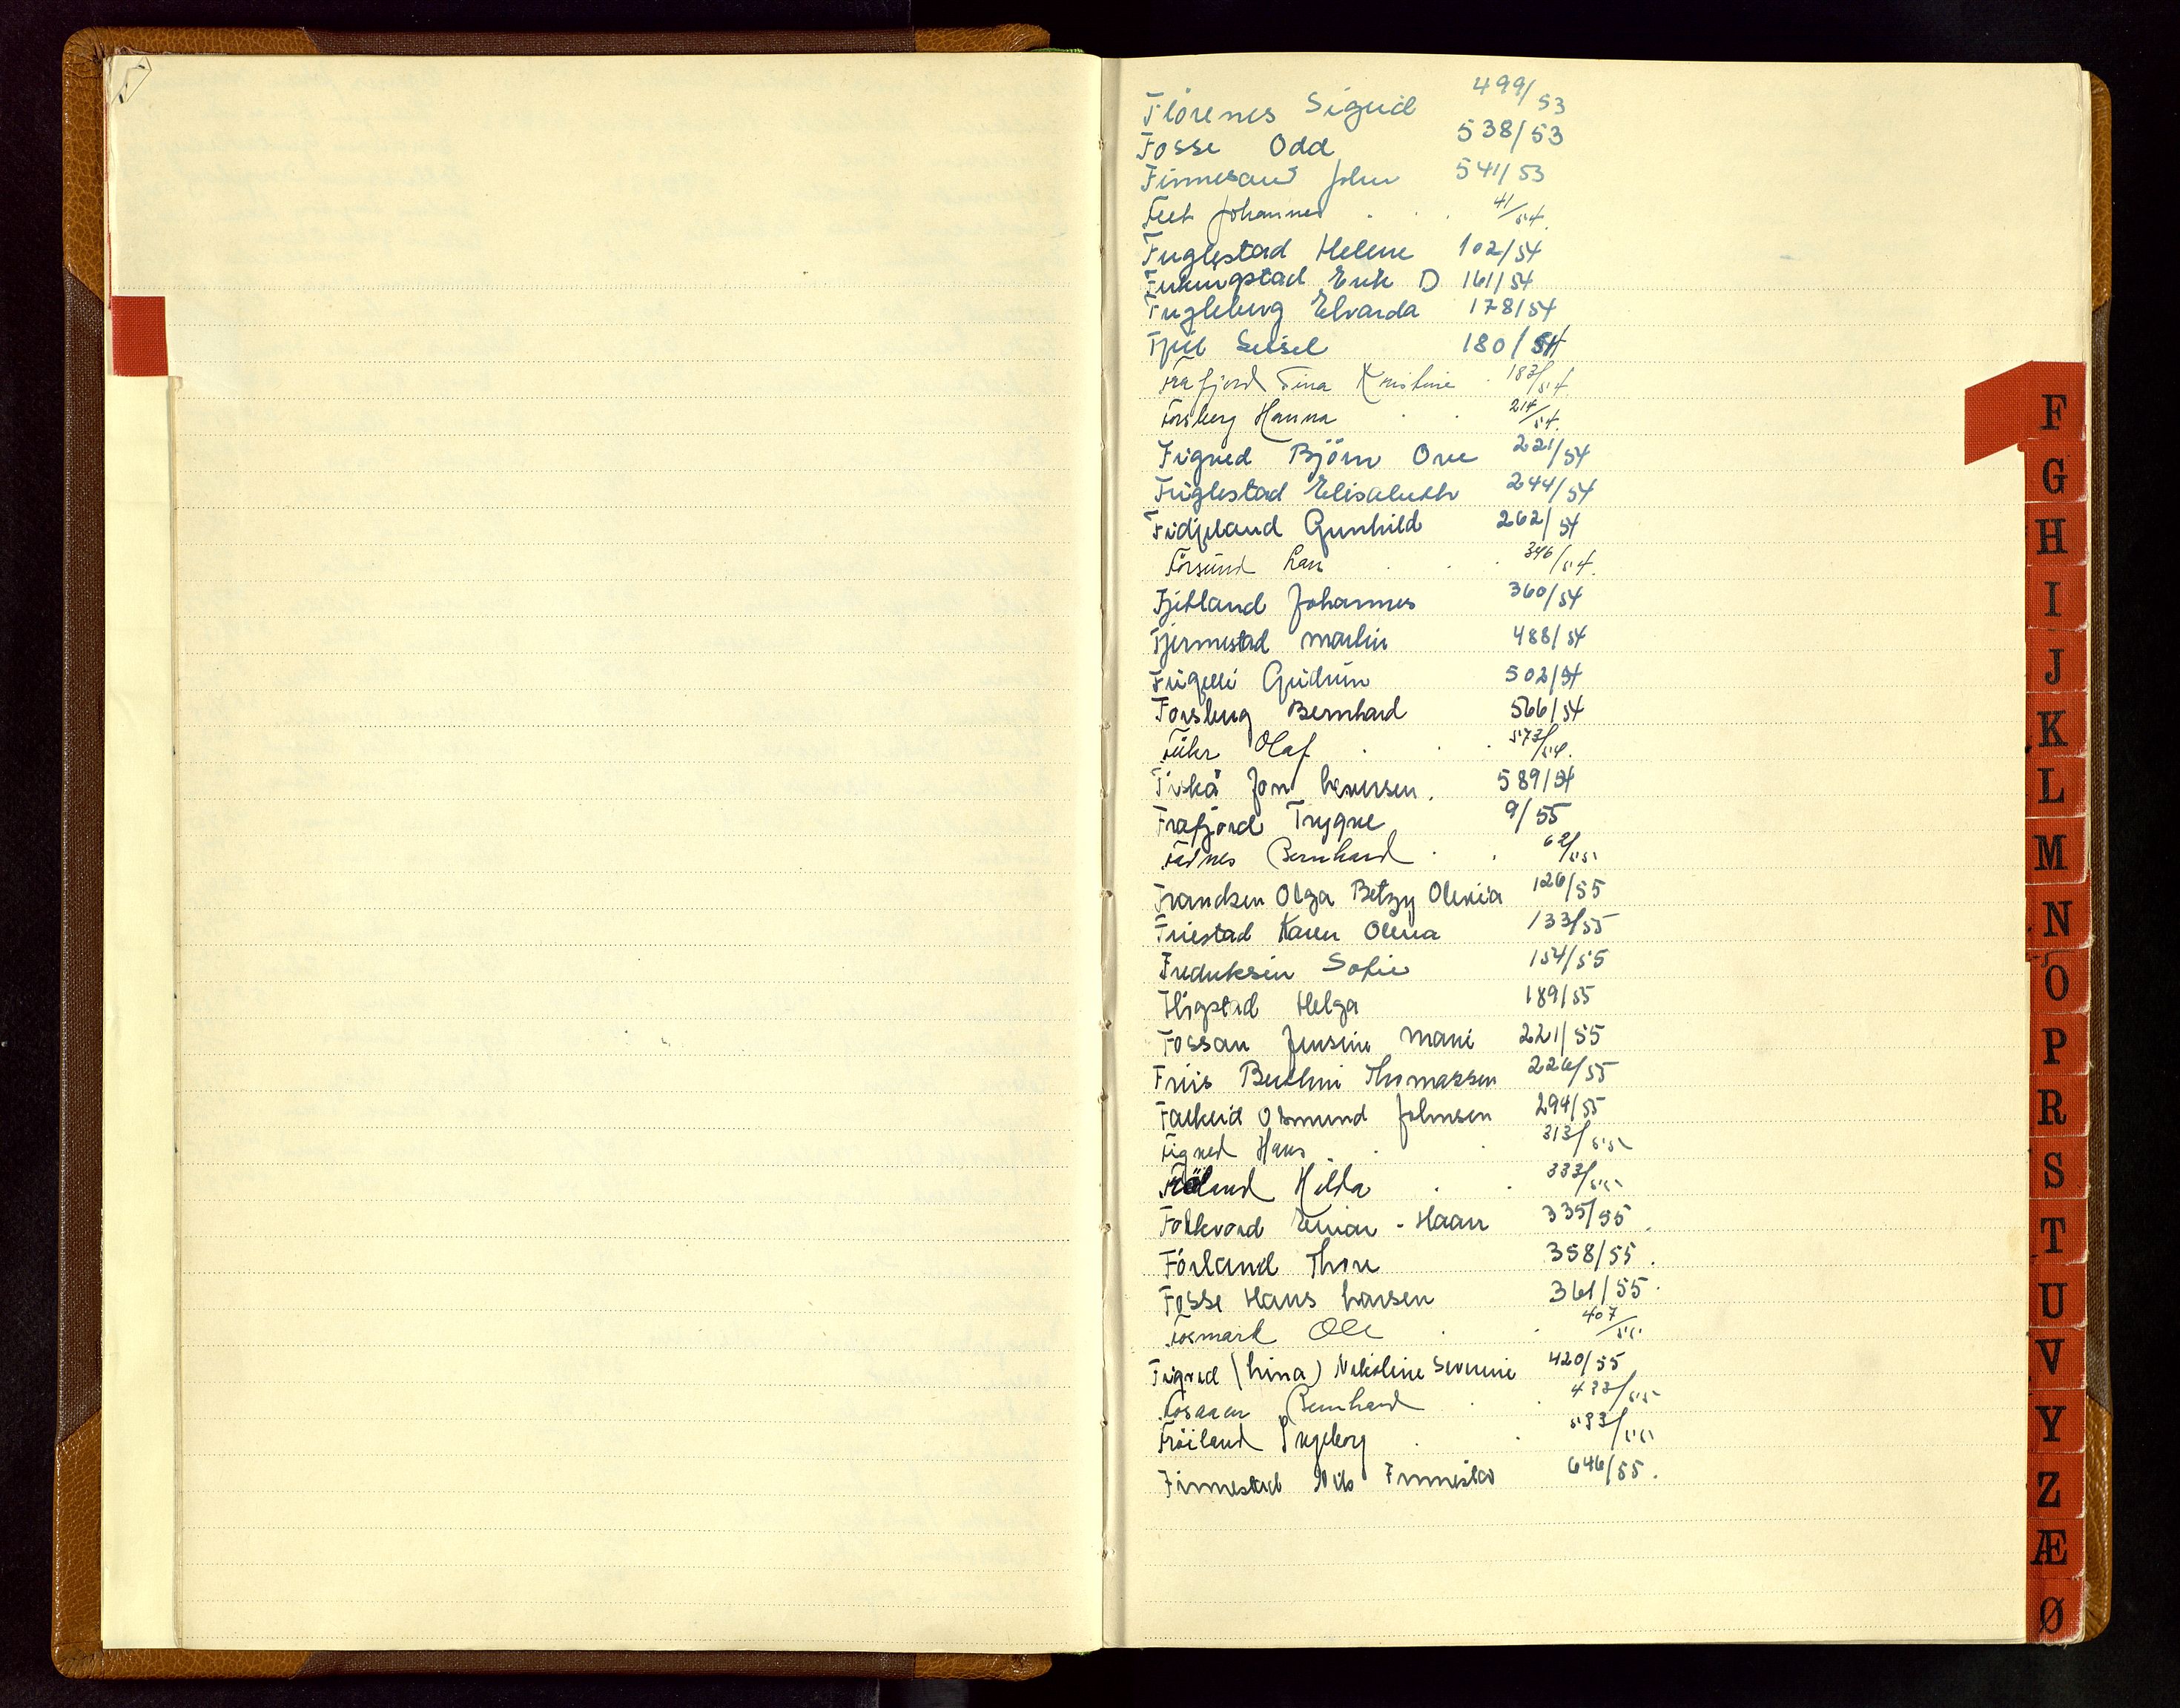 Flörenes Sigrid 499/53
Fosse Odd 538/53
Finnesand John 541/53
Feet Johannes . . 41/54.
Fuglestad Helene 102/54
Erik D 161/54
Fugleberg Edvarda 178/54
Fjeld Seisel 180/54
Frafjord Tina Kristine . 183/54
Forsberg Hanna . . 214/54.
Figved Björn Ove 221/54
Fuglestad Elisabeth 244/54
Fidjeland Gunhild 262/54
Försund Lars . . . 346/54.
Fjetland Johannes 360/54
Fjermestad Martin 488/54
Gudrun 502/54
Forsberg Bernhard 566/54
Führ Olaf . . . 573/54.
Fiskå Jon Laursen. 589/54
Frafjord Trygve 9/55
Bernhard . . 62/55
Frandsen Olga Betzy Olevia 126/55
Friestad Karen Olena 133/55
Fredriksen Sofie 154/55
Helga 189/55
Fossan Jensine Marie 221/55
Friis Berthine Thomassen 226/55
Falkeid Osmund Johnsen 294/55
Figved Hans . . . 313/55
Fröland Hilda . . 333/55
Folkvord Einar - Haar 335/55.
Förland Thore 358/55.
Fosse Hans Larsen 361/55.
Fosmark Ole . . 407/55
Figved (Lina) Nikoline Severine 420/55
Fossaaen Bernhard . . 433/55
Fröiland Ingeborg . . 593/55
Finnestad Nils Finnestad 646/55.
F
G
H
I
J
K
L
M
N
O
P
R
S
T
U
V
Y
Z
Æ
Ø